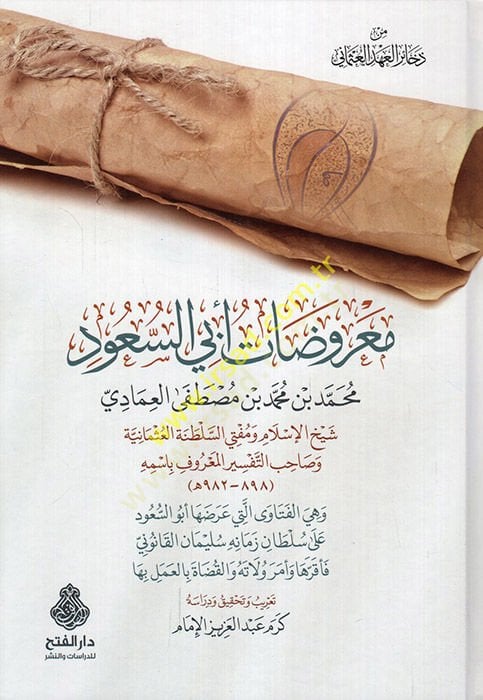 مِنْ
ذَخَائِرِ الْعَهْدِ الْعُثْمَانِي
مَعْرُوضَاتُ أَبِي السُّعُودِ
مُحَمَّد بْنِ مُحَمَّد بْنِ مُصْطَفَى العِمَادِيّ
شَيْخِ الإِسْلَامِ وَمُفْتِي السَّلْطَنَةِ العُثْمَانِيَّةِ
وَصَاحِبِ التَّفْسِيرِ المَعْرُوفِ بِاسْمِهِ
(٨٩٨-٩٨٢هـ)
وَهِيَ الفَتَاوَى الَّتِي عَرَضَهَا أَبُو السُّعُود
عَلَى سُلْطَانِ زَمَانِهِ سُلَيْمَان القَانُونِيّ
فَأَقَرَّهَا وَأَمَرَ وُلَاتَهُ وَالقُضَاةَ بِالعَمَلِ بِهَا
تَعْرِيبُ وَتَحْقِيقُ وَدِرَاسَةُ
كَرَم عَبْد العَزِيز الإِمَام
دار الفتح
للدراسات والنشر